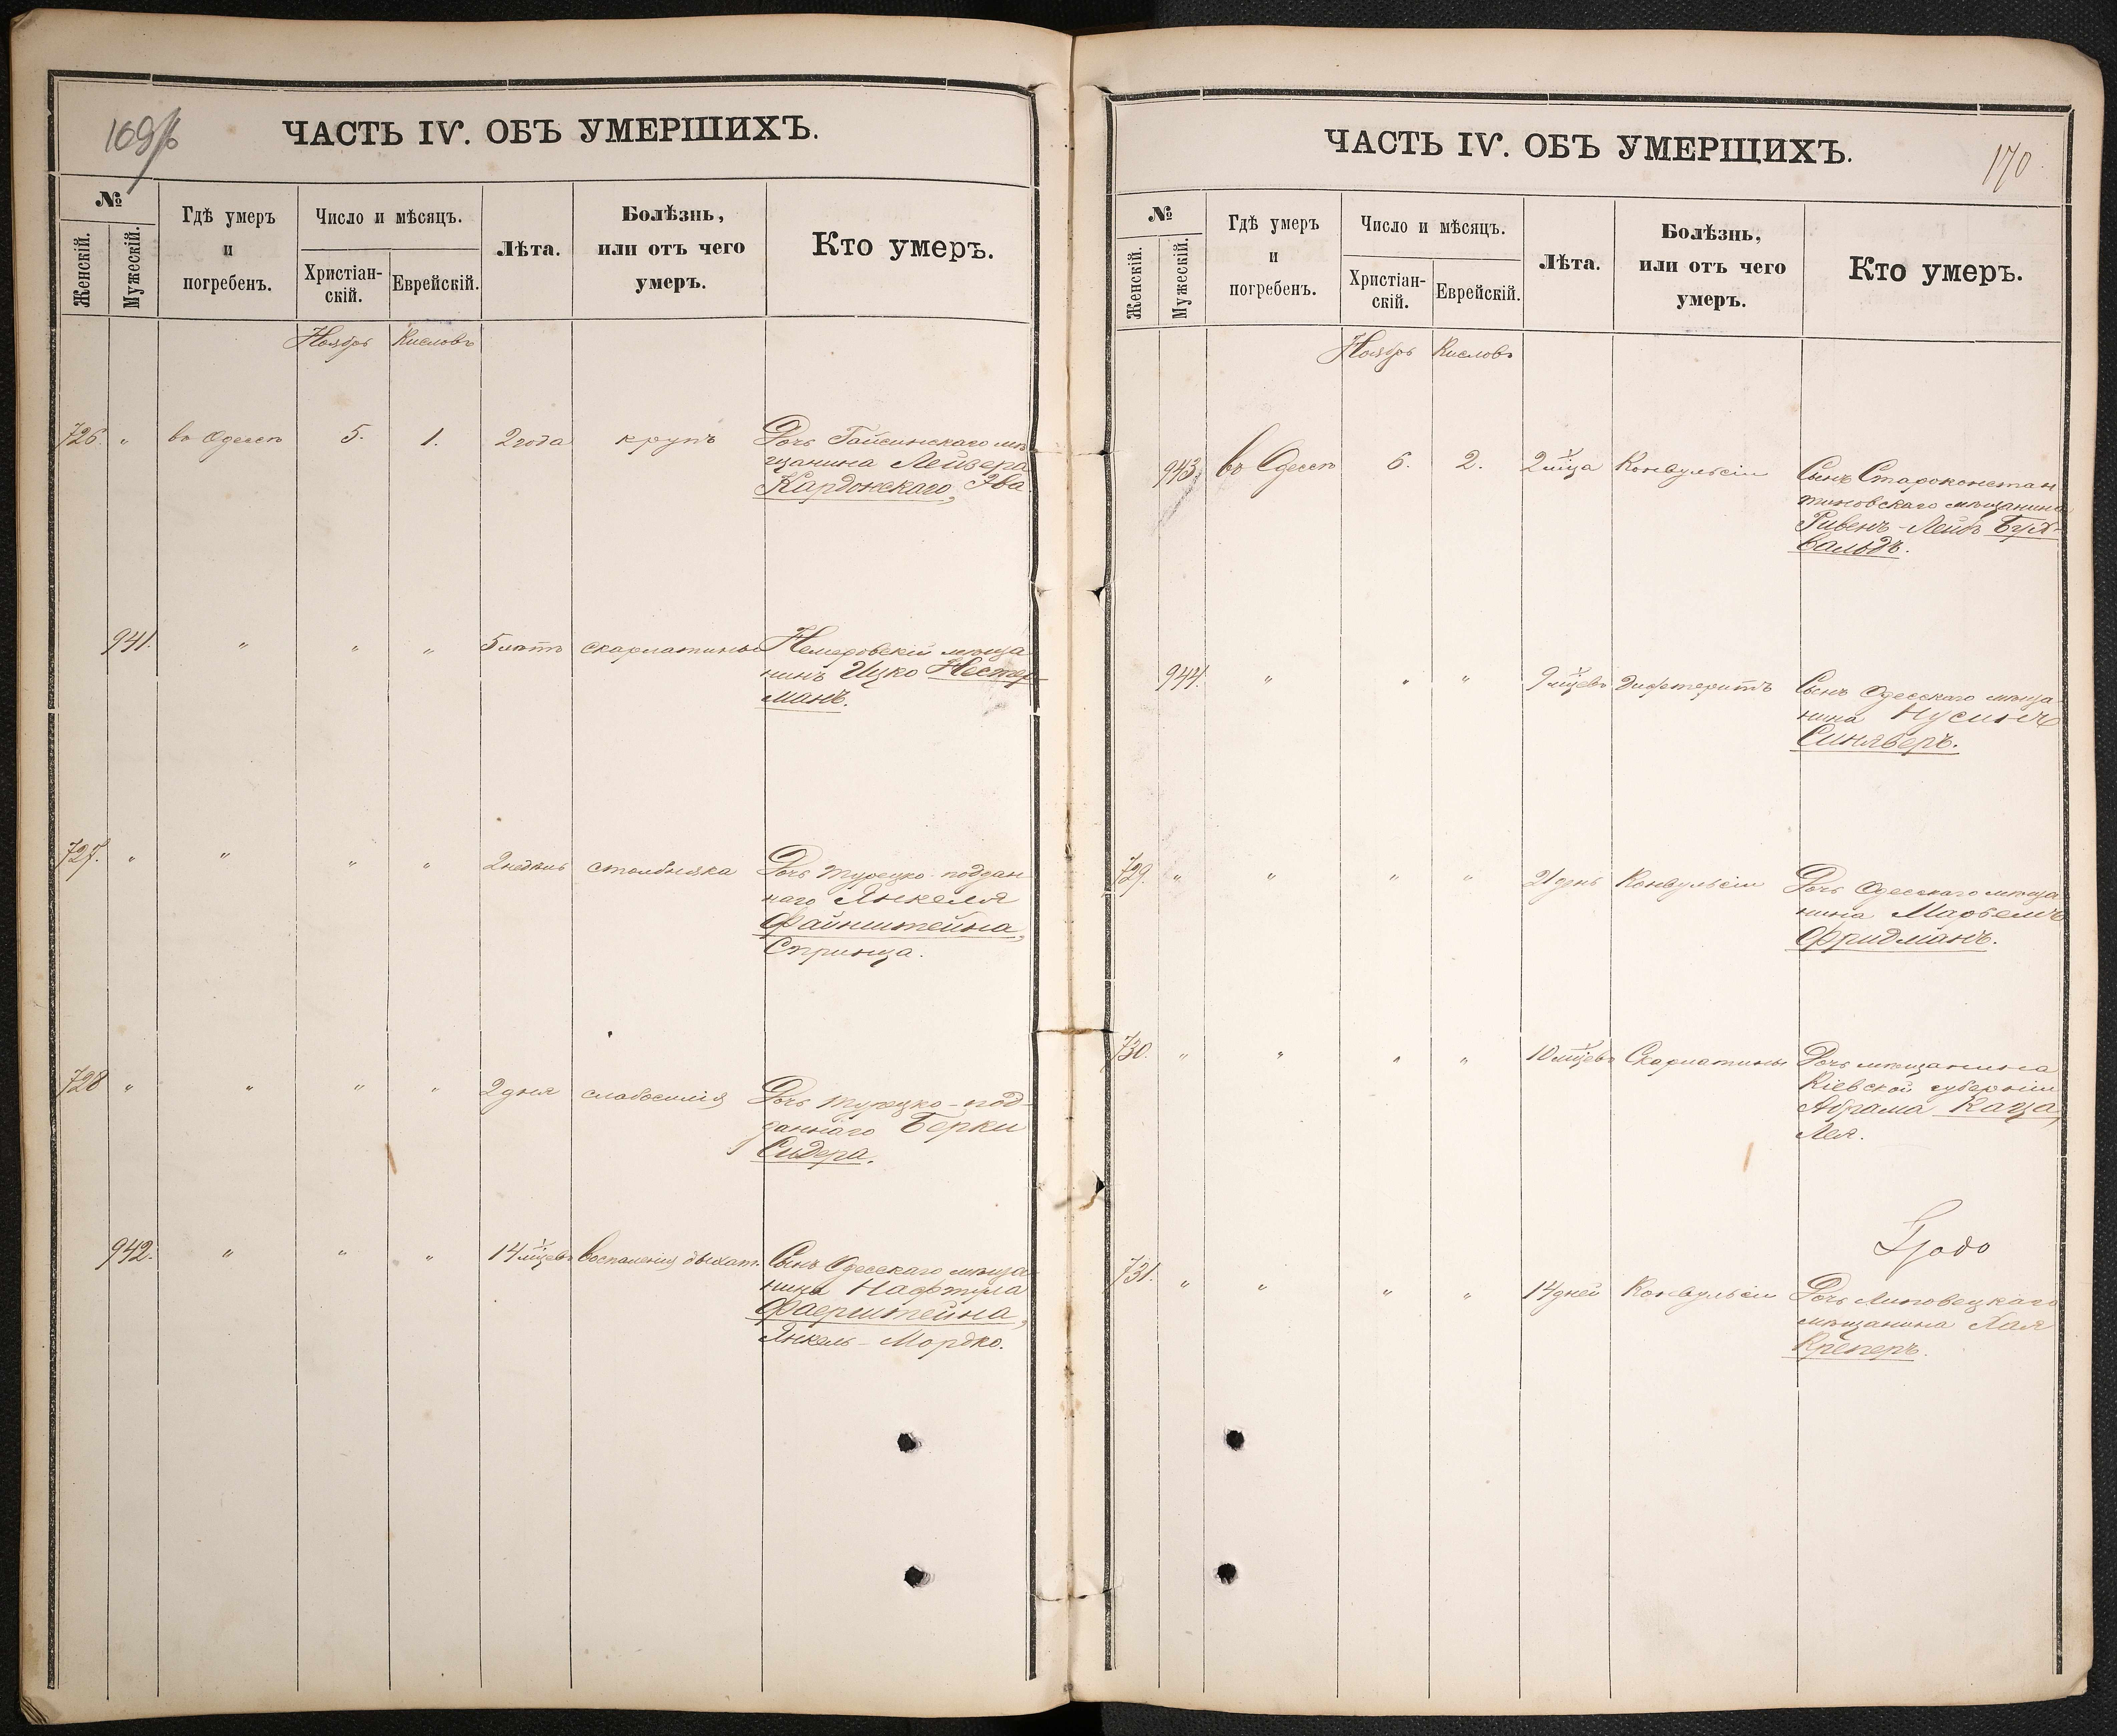 169/б
ЧАСТЬ IV. ОБЪ УМЕРШИХЪ.
№
Женскій.
Мужескій.
Гдѣ умеръ
и
погребенъ.
Число и мѣсяцъ.
Христіан-
скій.
Еврейскій.
Лѣта.
Болѣзнь,
или отъ чего
умеръ.
Кто умеръ.
Ноябрь Кислевъ
726. " въ Одессѣ 5. 1. 2 года крупъ Дочь Гайсинскаго мѣ
щанина Лейзера
Кардонскаго, Эва
941. " " " 5 лѣтъ скарлатины Немеровскій мѣща
нинъ Ицко Нестер
манъ.
727. " " " " 2 недѣли столбняка Дочь турецко-поддан
наго Янкеля
Файнштейна,
Спринца.
728 " " " " 2 дня слабосилія Дочь турецко-под-
даннаго Берки
Сидера.
942. " " " 14 мцевъ Воспаленія дыхат. Сынъ Одесскаго мѣща
нина Нафтула
Фаерштейна,
Янкель-Мордко.
ЧАСТЬ IV. ОБЪ УМЕРШИХЪ.
170
№
Женскій.
Мужескій.
Гдѣ умеръ
и
погребенъ.
Число и мѣсяцъ.
Христіан-
скій.
Еврейскій.
Лѣта.
Болѣзнь,
или отъ чего
умеръ.
Кто умеръ.
Ноябрь Кислевъ
943. въ Одессѣ 6. 2. 2 мца Конвульсіи Сынъ Староконстан
тиновскаго мѣщанина
Ривенъ-Лейб
вальдъ.
944. " " " 9 мцевъ Дифтеритъ Сынъ Одесскаго мѣща
нина Нусинъ
Синяверъ.
729. " " " " 21 день Конвульсіи Дочь Одесскаго мѣща
нина
Фридманъ.
730. " " " " 10 мцевъ Скарлатины Дочь мѣщанина
Кіевской губерніи
Абрама Каца,
Лея.
731. " " " " 14 дней Конвульсіи Дочь Липовецкаго
мѣщанина Хая
Креперъ.